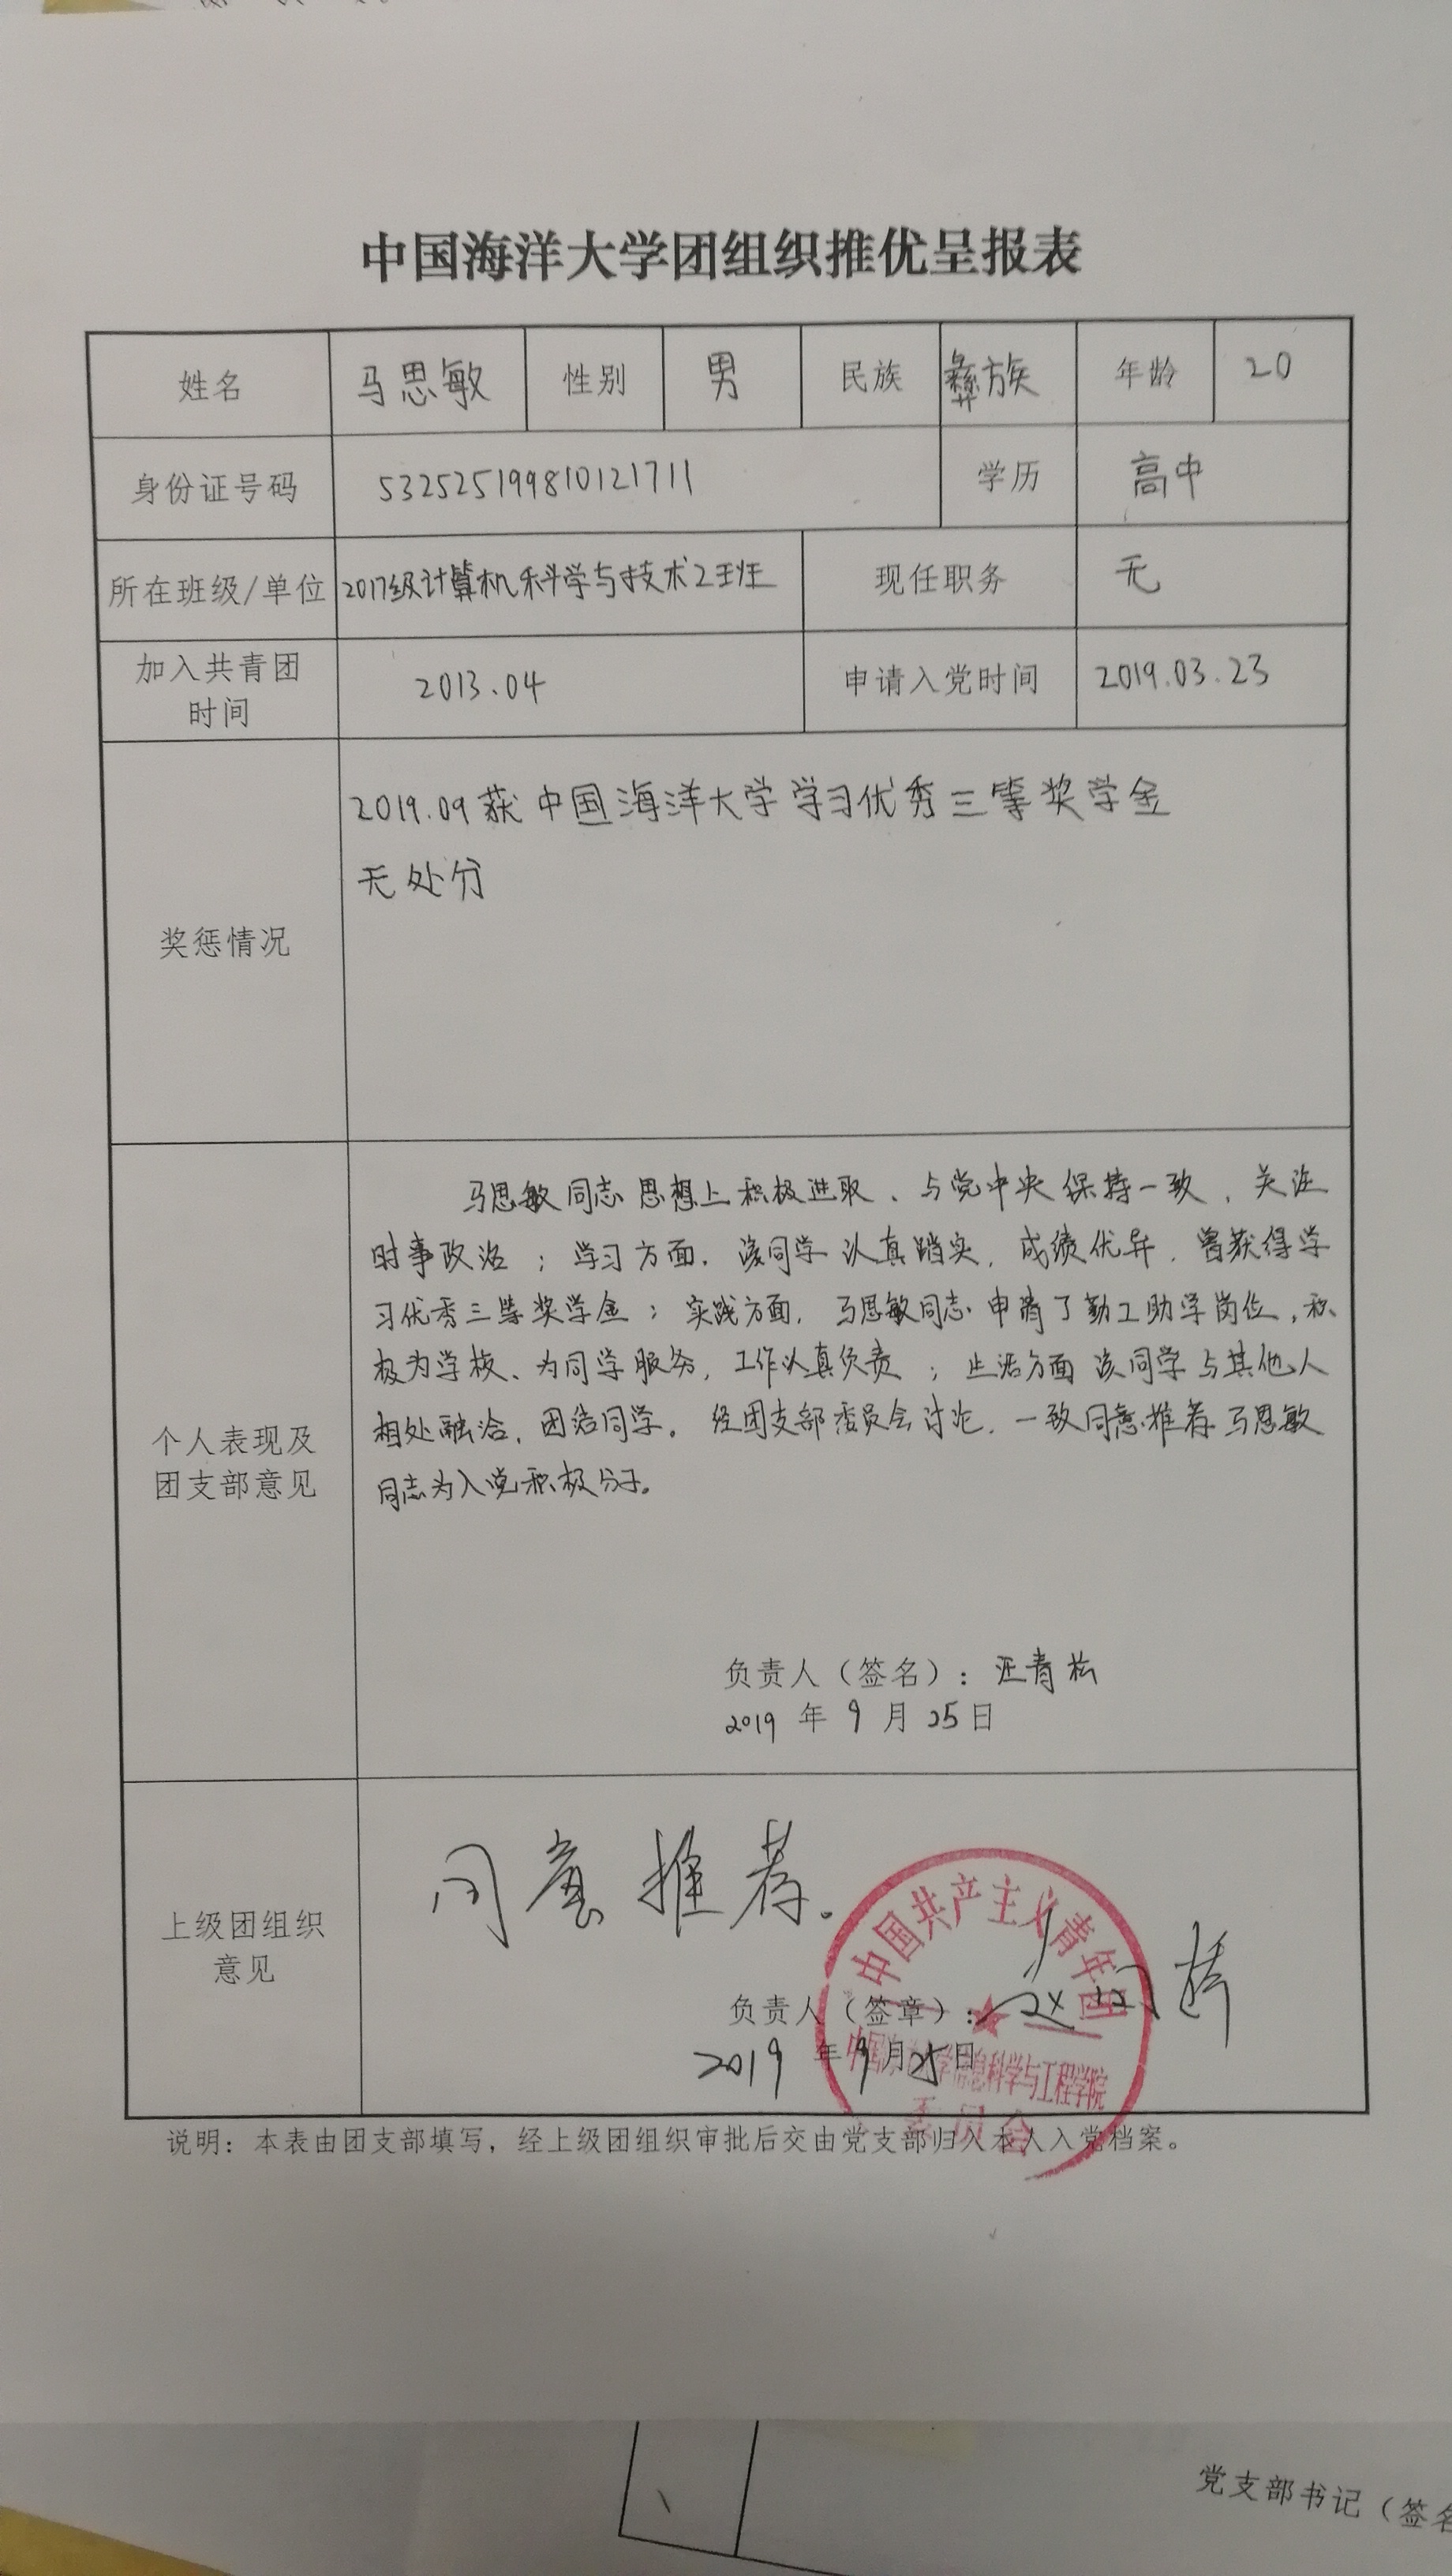 中国海洋大学团组织推优呈报表
姓名 马思敏 性别 男 民族 彝族 年龄 20
身份证号码 532525199810121711 学历 高中
所在班级/单位 2017级计算机科学与技术2班 现任职务 无
加入共青团
时间 2013.04 申请入党时间 2019.03.23
奖惩情况
2019.09获中国海洋大学学习优秀三等奖学金
无处分
个人表现及
团支部意见
马思敏同志思想上积极进取、与党中央保持一致,关注
时事政治;学习方面,该同学认真踏实,成绩优异,曾获得学
习优秀三等奖学金;实践方面,马思敏同志申请了勤工助学岗位,积
极为学校、为同学服务,工作认真负责;生活方面该同学与其他人
相处融洽,团结同学。经团支部委员会讨论,一致同意推荐马思敏
同志为入党积极分子。
负责人(签名):汪青松
2019 年 9 月 25 日
上级团组织
意见
同意推荐。
负责人(签章):
2019 年 9 月 25 日
中国共产主义青年团
中国 学信息科学与工程学院
委员会
说明:本表由团支部填写,经上级团组织审批后交由党支部归入本人入党档案。
党支部书记(签名